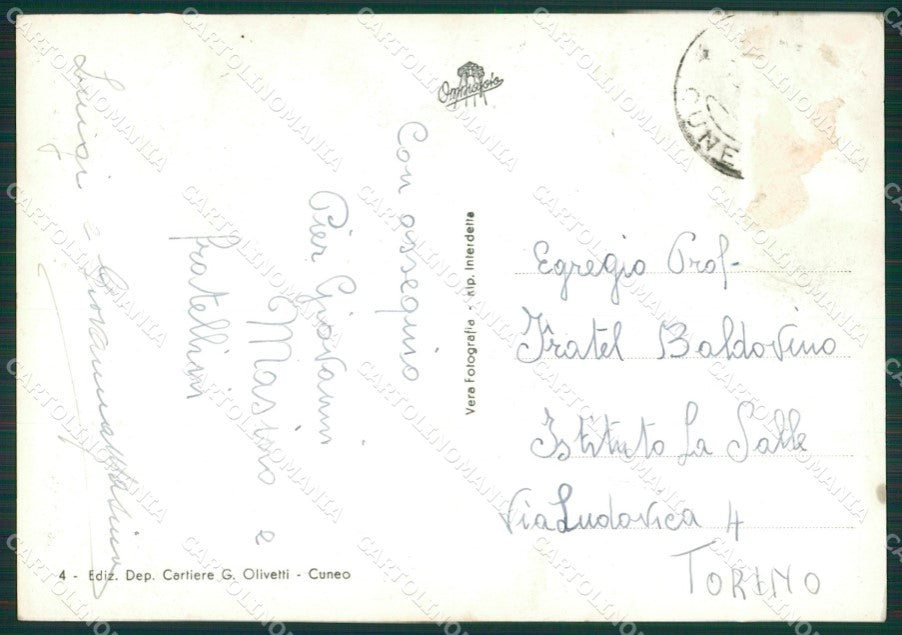 Con ossequio
Pier Giovanni
Masino e
fratellini
Luigi e Giovanna Masino
Vera Fotografia - Rip. Interdetta
4 - Ediz. Dep. Cartiere G. Olivetti - Cuneo
CUNE
Egregio Prof.
Fratel Baldovino
Istituto La Salle
Via Ludovica 4
TORINO
CARTOLINOMANIA